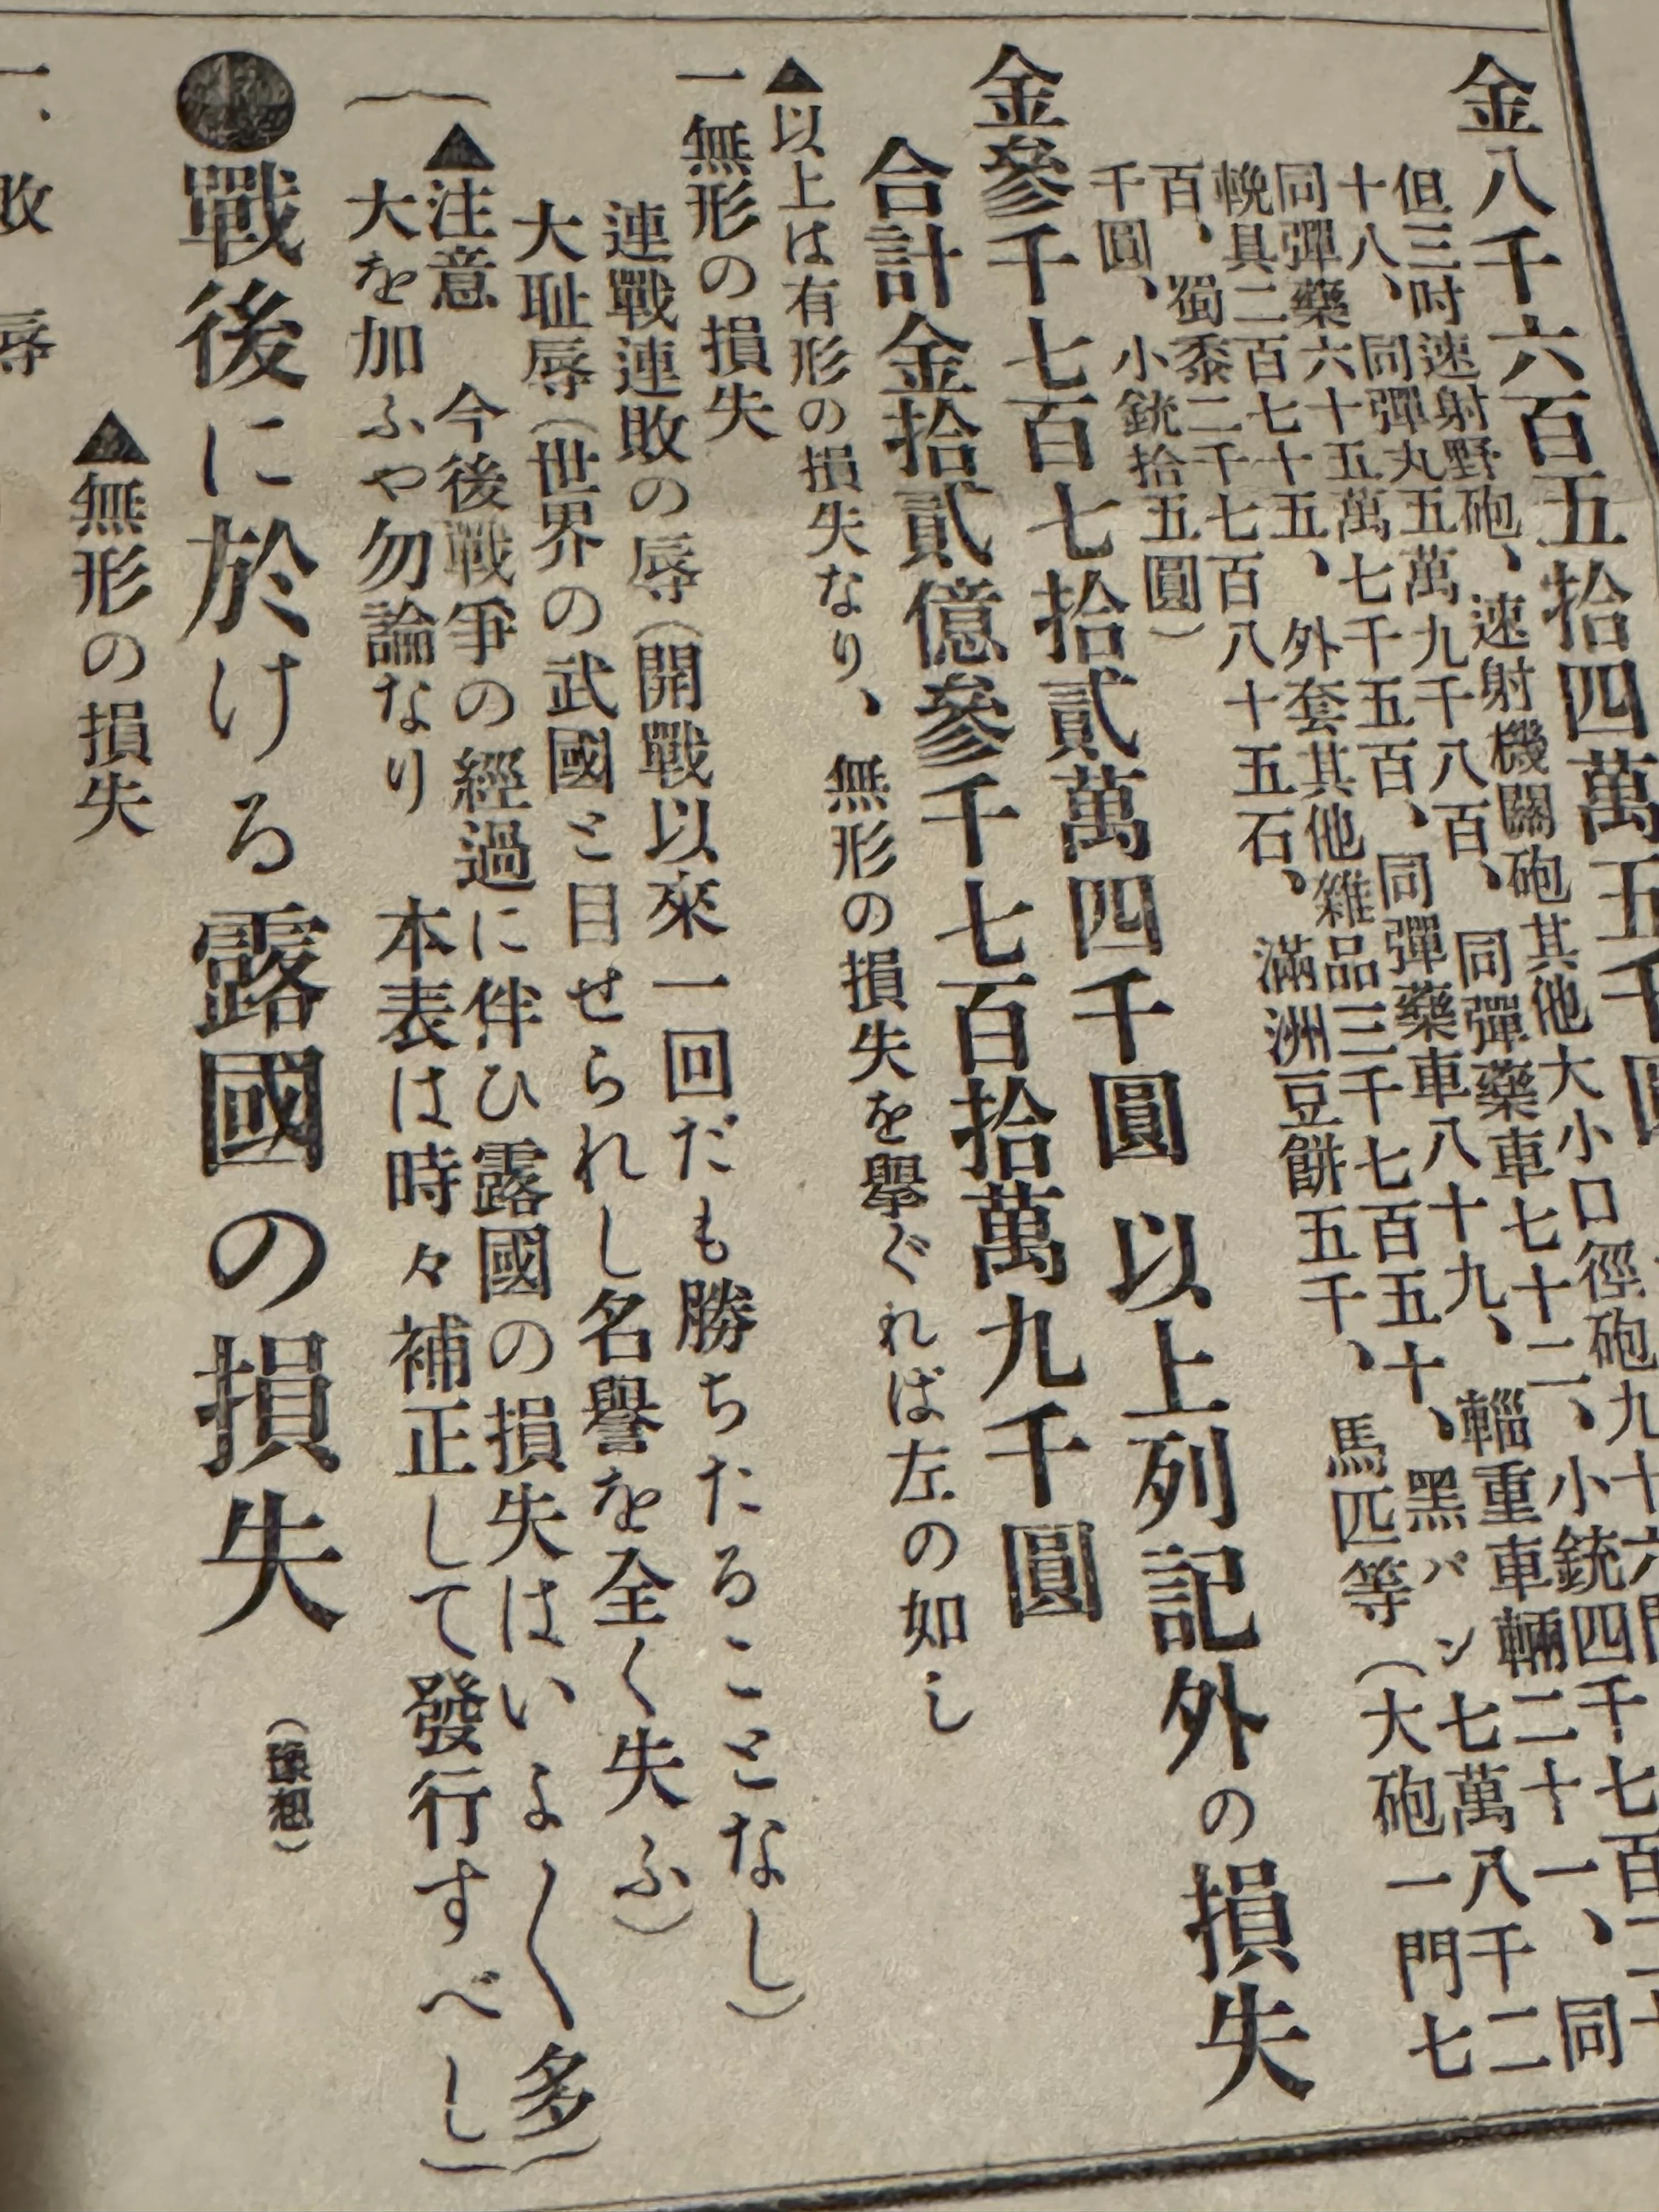 金八千六百五拾四萬五千圓
但三吋速射野砲、速射機關砲其他大小口徑砲九十六門
十八、同彈丸五萬九千八百、同彈藥車七十二、小銃四千七百二十
同彈藥六十五萬七千五百、同彈藥車八十九、輜重車輛二十一、同
輓具二百七十五、外套其他雜品三千七百五十、黑パン七萬八千二
百、蜀黍二千七百八十五石、滿洲豆餅五千、馬匹等(大砲一門七
千圓、小銃拾五圓)
金參千七百七拾貳萬四千圓 以上列記外の損失
合計金拾貳億參千七百拾萬九千圓
▲以上は有形の損失なり、無形の損失を擧ぐれば左の如し
一無形の損失
連戰連敗の辱(開戰以來一回だも勝ちたることなし)
大耻辱(世界の武國と目せられし名譽を全く失ふ)
(▲注意 今後戰爭の經過に伴ひ露國の損失はいよ〱多
大を加ふや勿論なり 本表は時々補正して發行すべし)
●戰後に於ける露國の損失(豫想)
▲無形の損失
一、敗辱